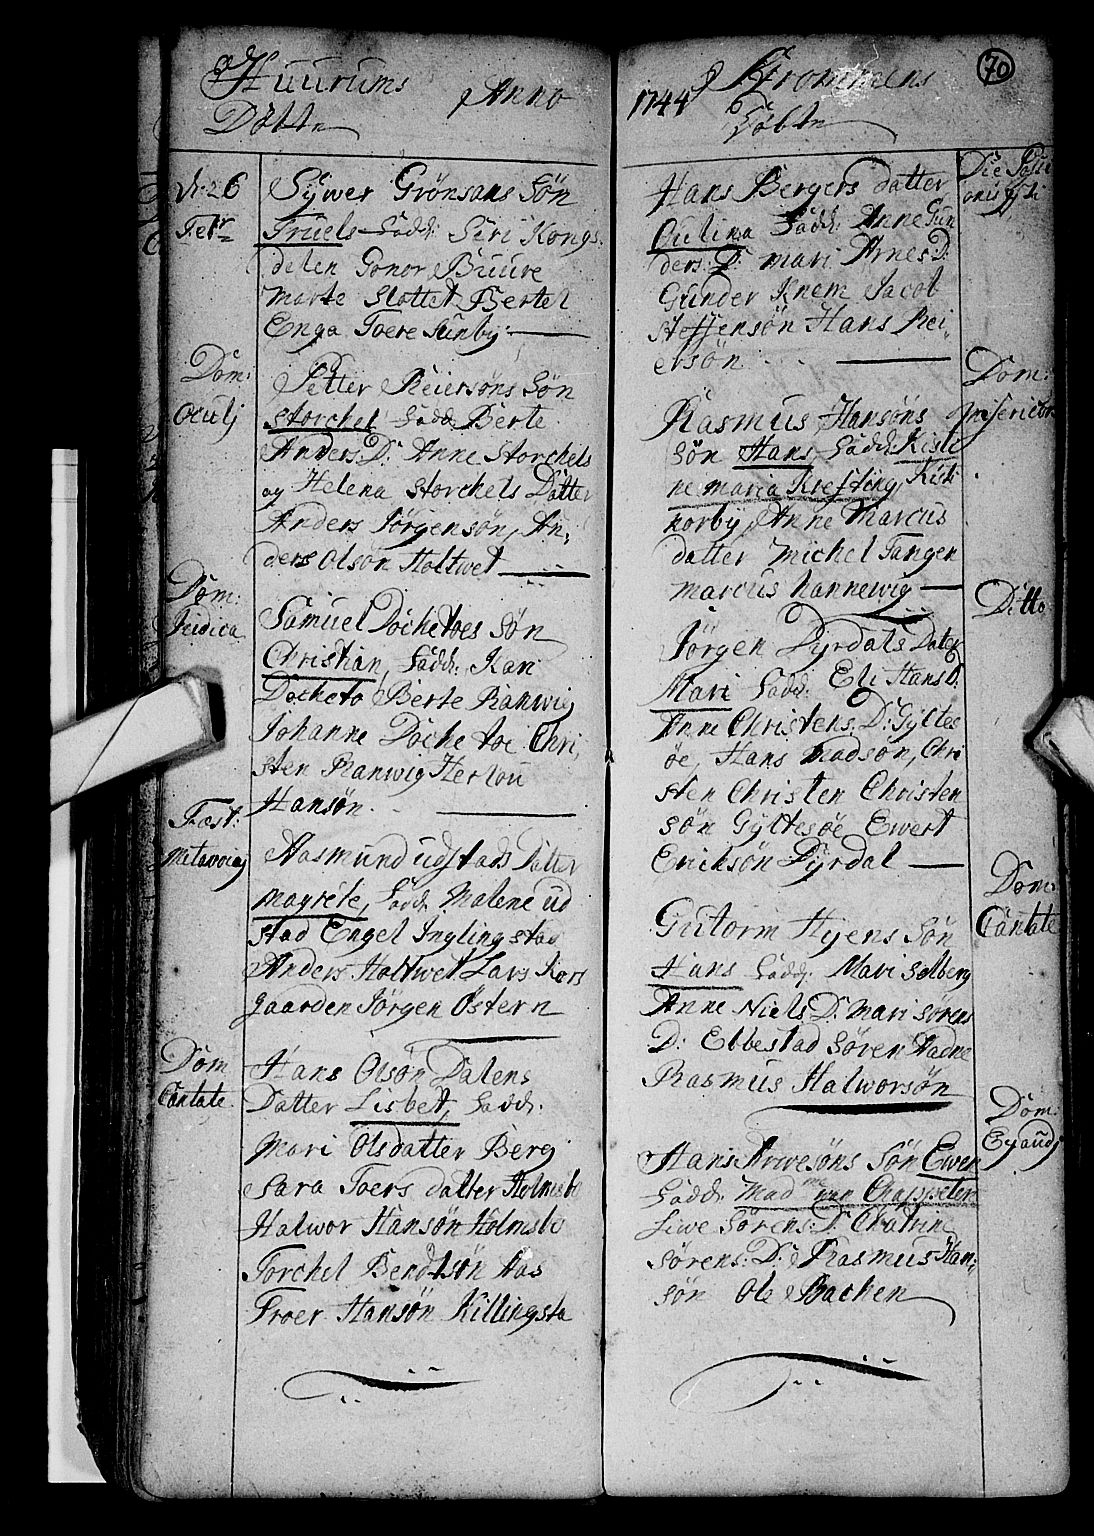 Huurums
Anno
Döbte
d: 26
Febr
Sywer Grönsans Sön
Truels Fadd: Siri Kongs
delen Gonor Buure
Marte Slottet Bertel
Enga Toere Sunby
Dom:
Oculj
Petter Reiersöns Sön
Storchel Fadd: Berte
Anders D: Anne Storchels
og Helena Storchels Datter
Anders Jörgensön, An,
ders Olsön Holtwet
Dom:
Judica
Samuel Dochetoes Sön
Christian, Fadd: Kari
Docheto Berte Ranwig
Johanne Doche toe Chri,
sten Ranwig Herlou
Hansön.
Fæst:
Aasmund udstads Datter
Magrete, Fadd: Malene ud
stad Engel Inglingstad
Anders Holtwet Lars Kors
gaarden Jörgen Östern
Dom
Cantate
Hans Olsön Dalens
Datter Lisbet, Fadd:
Mari Olsdatter Berg
Sara Toers datter Holmsbo
Halwor Hansön Holmsbo
Torchel Bendtsön Aas
Troer Hansön Killingsta
1744
Strommens
Döbte
70
Hans Bergers datter
Oulina Fadd: Anne Gun
ders: D: Mari Arnes: D:
Gunder Knem Jacob
Steffensön Hans Rei,
ersön
Dom:
Misericor:
Rasmus Hansöns
Sön Hans Fadd: Kisti
ne Maria Krefting, Kisti
Korby, Anne Marcus
datter Michel Tangen
Marcus Hannewig
Ditto
Jörgen Dyrdals Dater
Mari Fadd: Eli Hans D:
Anne Christens: D: Gyltes
öe, Hans Madsön, Chri
sten Christen Christen
sön Gyltesöe Ewert
Ericksön Dyrdal
Dom:
Cantate
Gutorm Hyens Sön
Hans Fadd: Mari Solberg
Anne Niels D: Mari Sörens
D: Ebbestad Sören Aadne
Rasmus Halworsön
Dom:
Exaudj
Hans Arwesöns Sön Ewen
Fadd: Mad me van Chappelen
Liwe Sörens: D: Chatrine
Sörens: D: Rasmus Han,
sön Ole Bachen